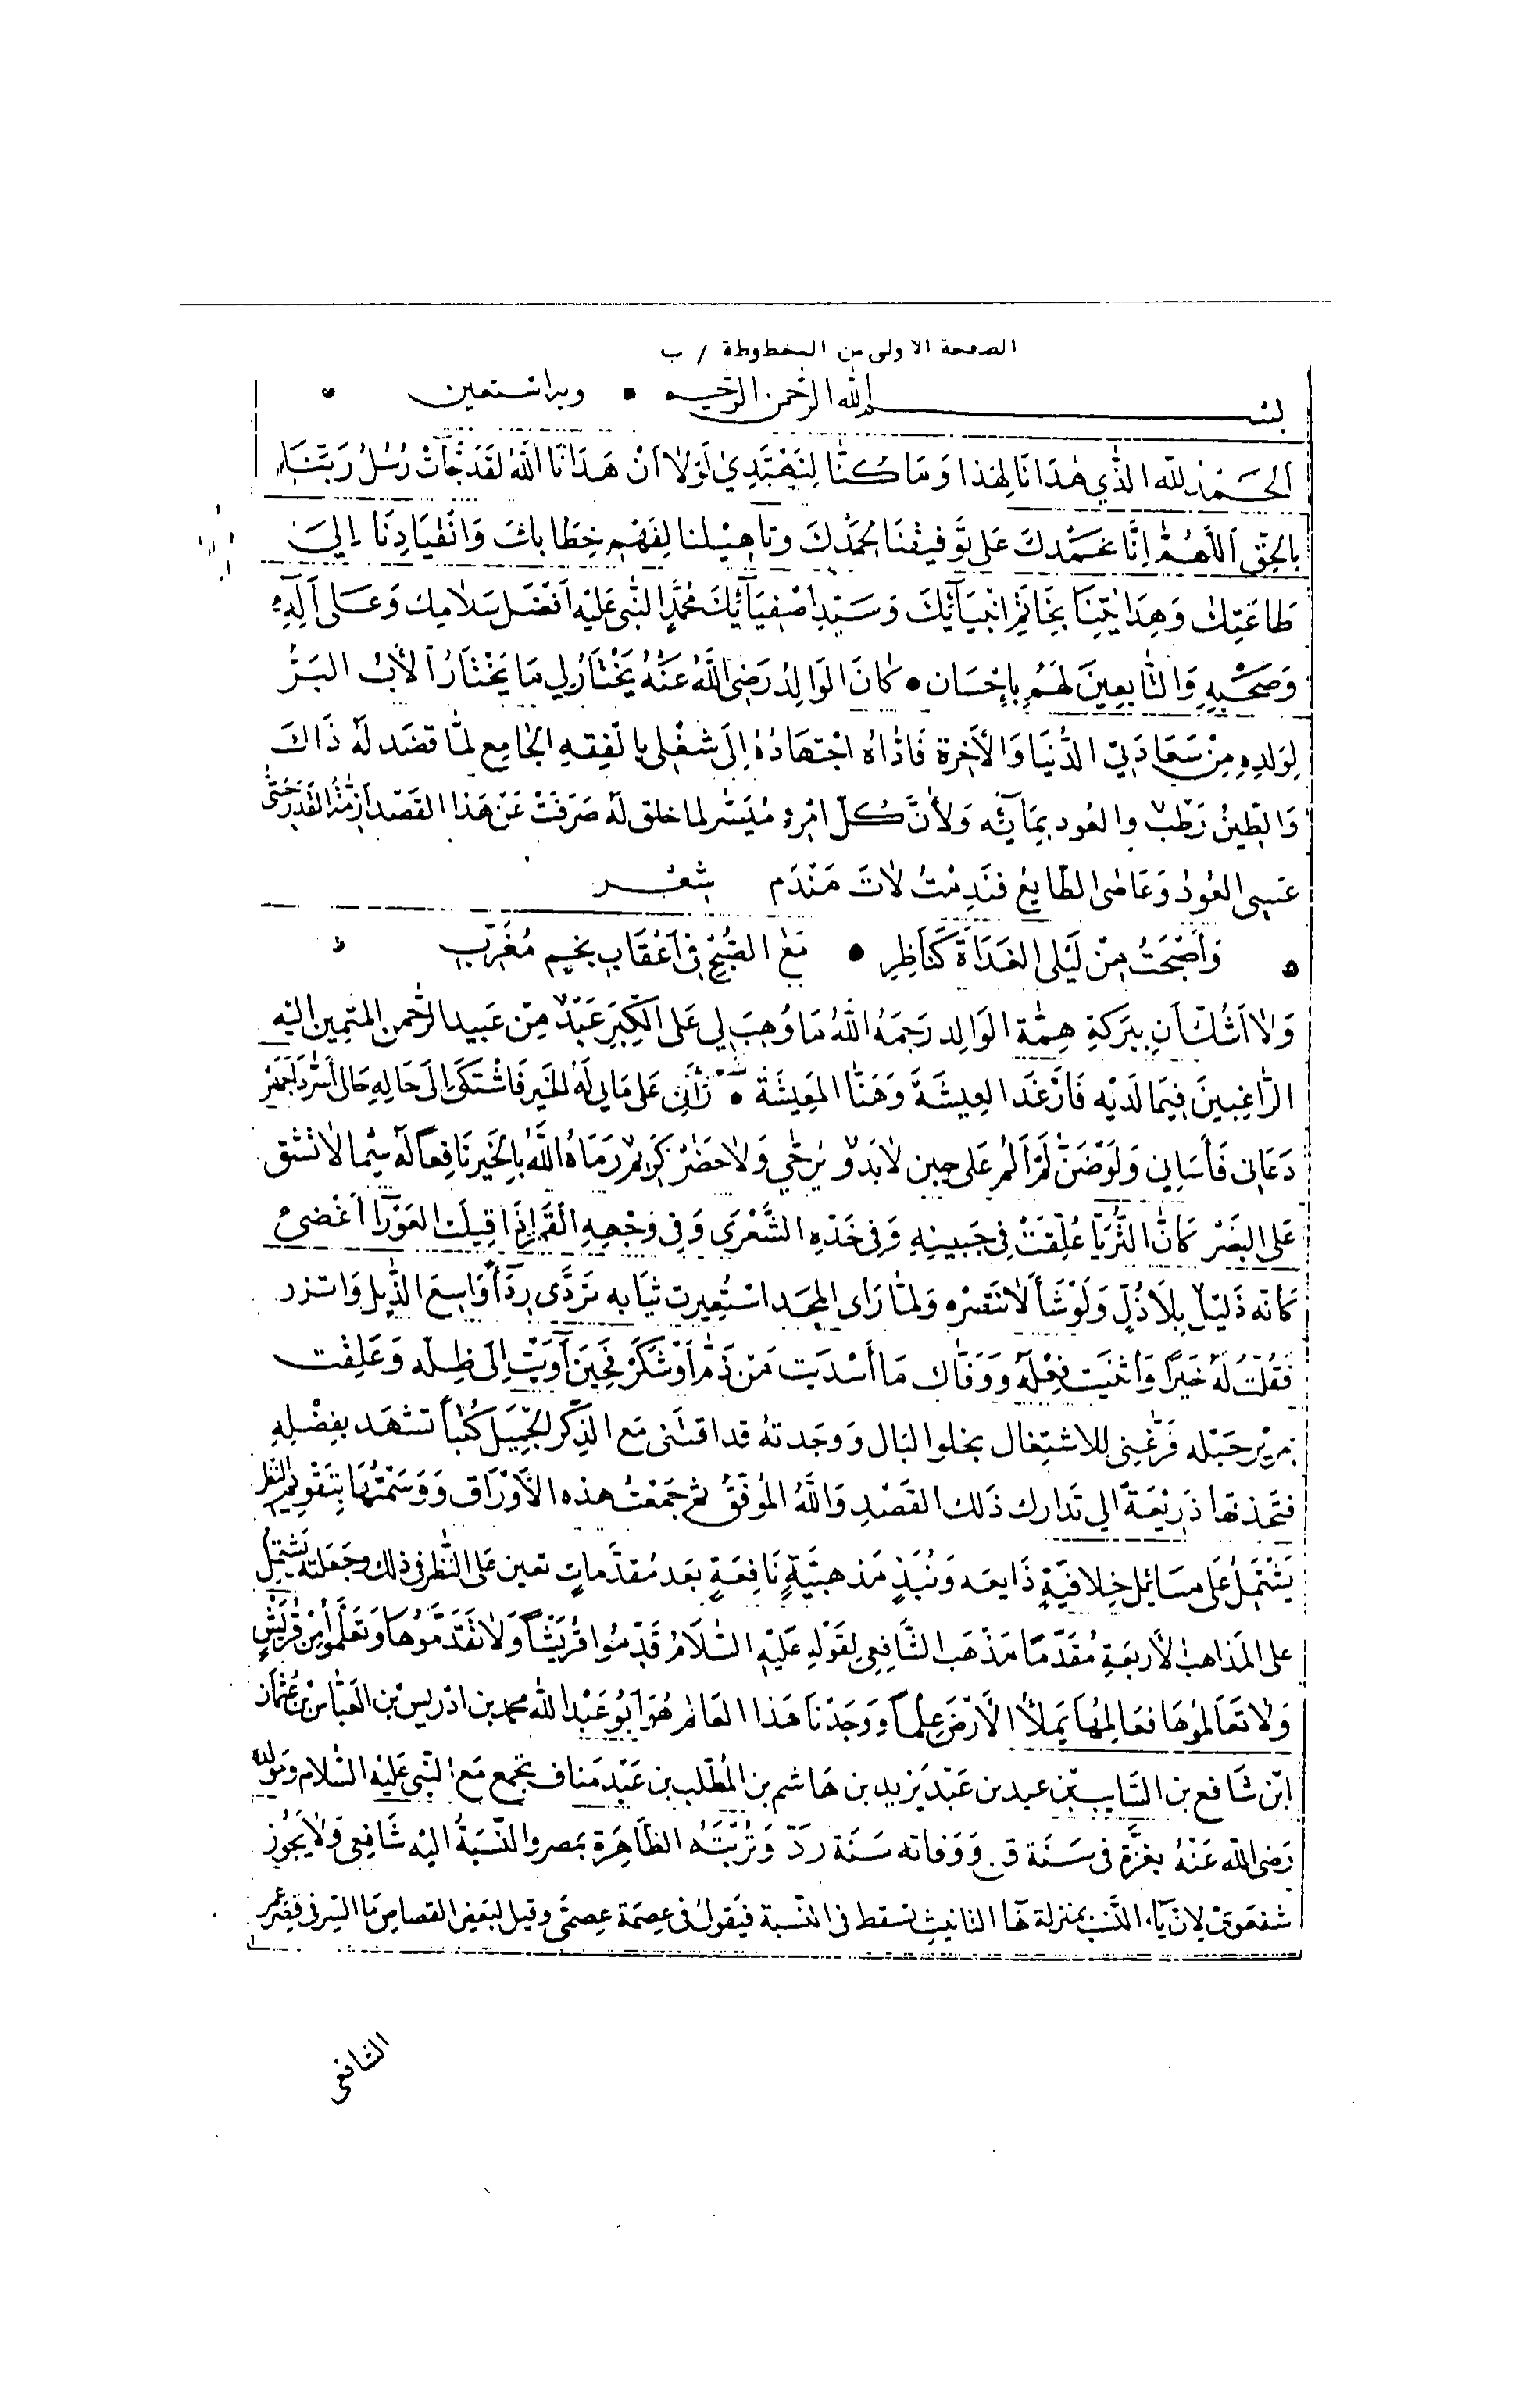 الصفحة الاولى من المخطوطة / ب
بسم الله الرحمن الرحيم • وبه استعين
اَلحَمْدُ لله الذَّي هَدَانَا لِهذا وَمَا كُنَّا لِنَهْتَدِيَ لَوْلاَ اَنْ هَدَانَا اللَّهُ لَقَدْ جَّاتْ رُسُلُ رَبّنَا
بِالحَقّ اَللَّهُمَّ اِنَّا نحَمدكَ عَلى تَوفيقنَا لحمْدكَ وتاهيلنا لِفَهْمِ خِطَابكَ وَانْقيَادِنَا اِلىَ
طَاعَتِكَ وَهِدَايَتِنَا بخَاتَمِ انْبيَآئِكَ وَسَيّدِ اصْفِيَآئِكَ مُحَمَّدٍ النَّبى عَلَيْهِ اَفضَل سَلاَمِكَ وَعَلى آلِهِ
وَصَحْبِهِ وَالتَّابِعِينَ لَهُمْ بِاِحْسَان • كَانَ الوَالِدُ رَضِىَ اللَّهُ عَنْهُ يَخْتَارُ لِي مَا يَخْتَارُ الأَبُ البَرُّ
لِوَلدِهِ مِنْ سَعَادَتىِ الدُّنيَا وَالأَخِرَة فَادَّاهُ اجْتهَادُهُ اِلَى شغْلى بِالفِقهِ الجَامِع لمَّا قصَد لَهُ ذَاكَ
وَالطّينُ رَطْبٌ والعُود بِمَآئِه وَلأَنَّ كُلّ امْرِءٍ مُيَسَّر لما خلق لَهُ صَرَفَتْ عَنْ هَذا القصْد اَزِمَّةُ القَدَر حَتَّى
عَسِى العُودُ وَعَاصَى الطَّايعُ فنَدِمْتُ لاَتَ مَنْدَم شِعْر
وَأَصْبَحَتُ مِنْ لَيْلى الغَدَاةَ كَنَاظِرِ • مَعَ الصُّبْحِ فِى اَعْقَابِ نجمٍ مُغَرّبِ
وَلاَ اَشُكّ اَن بِبَرَكةِ هِمَّة الوَالِد رَحِمَهُ اللَّهُ مَا وُهِبَ لِي عَلى الكِبَرِ عَبْدٌ مِنْ عَبِيد الرَّحْمن المتمِين اليْهِ
الرَّاغِبِينَ فِيمَا لَدَيْهِ فَأَرْغَد العِيشَةَ وَهَنَّا المَعِيشَةَ • رَأنِى عَلى مَا بي لَهُ الخير فَاشْتكَى اِلَى حَالِهِ حَالى أَسَرّ وَاجَهَرْ
دَعَانِى فَأسَانِي وَلَوْ ضَنَّ لَمْ اَلُمْ عَلى حِين لاَ بَدْوٌ يُرَجَّي وَلاَ حَضَرْ كَرِيمٌ رَمَاهُ اللَّهُ بِالخَيْر نَافِعاً لَهُ سِيْما لاَ تشُق
عَلى البَصَرْ كَأنَّ الثُّريَّا عُلّقَتْ فِى جَبينِهِ وَفى خَدّهِ الشّعْرَى وَفِى وَجْهِهِ القَمَر اِذَا قِيلَت العَوْرَا اَغْضَىْ
كانّه ذَلِيْلٌ بِلاَ ذُلّ وَلَوْ شَأ لاَنتَصَرْ وَلمَّا رَاى المجد استُعِيرت ثيَابه تَرَدَّى رِدَأً وَاسِعَ الذَّيل وَاتزر
فَقُلْتُ لَهُ خَيرًا وَاثنَيت فِعْلَهُ وَوَفَّاك مَا أَسْدَيت مَنْ ذَمَّ اَوْ شكَرْ فحِينَ آوَيْت اِلَى ظِلّه وَعَلِقت
بمِريْر حَبْله فَرَّغَنِى للاشتِغال بخلو البَال وَوجَدتهُ قد اقتَنى مَع الذِّكر الجَمِيل كُتُباً تشهَد بفضْلِهِ
فتخذتها ذَرِيْعَةً الي تَدَارك ذَلك القَصْدِ وَاللَّهُ المُوَفّقُ ثم جَمَعْتُ هذه الأَوْرَاق وَوَسَمْتُهَا بِتَقْوِيْمِ النَّظر
يَشْتَمِلُ عَلى مسَائِل خِلافيَّةٍ ذَايعَه وَنُبَذٍ مَذهبيَّةٍ نَافِعَةٍ بَعد مُقدَّمَاتٍ تعين عَلى النَّظر فى ذلك وجَعَلته يَشْتَمِلُ
على المَذَاهب الأَربَعَةِ مُقَدّمًا مَذْهَبَ الشَّافِعِي لِقَوْلِهِ عَلَيْهِ السَّلاَمُ قَدّمُوا قُرَيْشاً وَلاَ تَقَدَّمُوهَا وَتَعَلَّمُوا مِنْ قُرَيْشٍ
وَلاَ تَعَالَمُوهَا فعَالِمُهَا يَمَلأُ الأَرْضَ عِلْماً وَوَجَدْنَا هَذا العَالِم هُوَ اَبُو عَبْد الله محمد بن ادْريس بْن العَبَّاس بْن عُثْمَان
ابْن شَافع بن السَّايب بْن عبيد بن عَبْد يَزيد بن هَاشم بن المُطّلب بن عَبْد مَناف يجمع مَع النَّبى عَليْه السَّلام وَمَولده
رَضى اللَّه عَنْهُ بغَزَّة فى سَنَة ق ن وَوَفاته سَنَة ردّ وَتُرْبَتَهُ الظَّاهِرَة بمصر والنّسْبَةُ اليْهِ شَافِعِى وَلاَ يَجُوز
شفعَوىّ لانّ يَآ النَّسَب بمنزلة هَا التانيثِ تسقط فى النّسبة فيَقولُ فى عِصمَة عِصمىّ وقيل لبَعضِ القصاص مَا السِّر فى قِصَر عمر
الشافعى